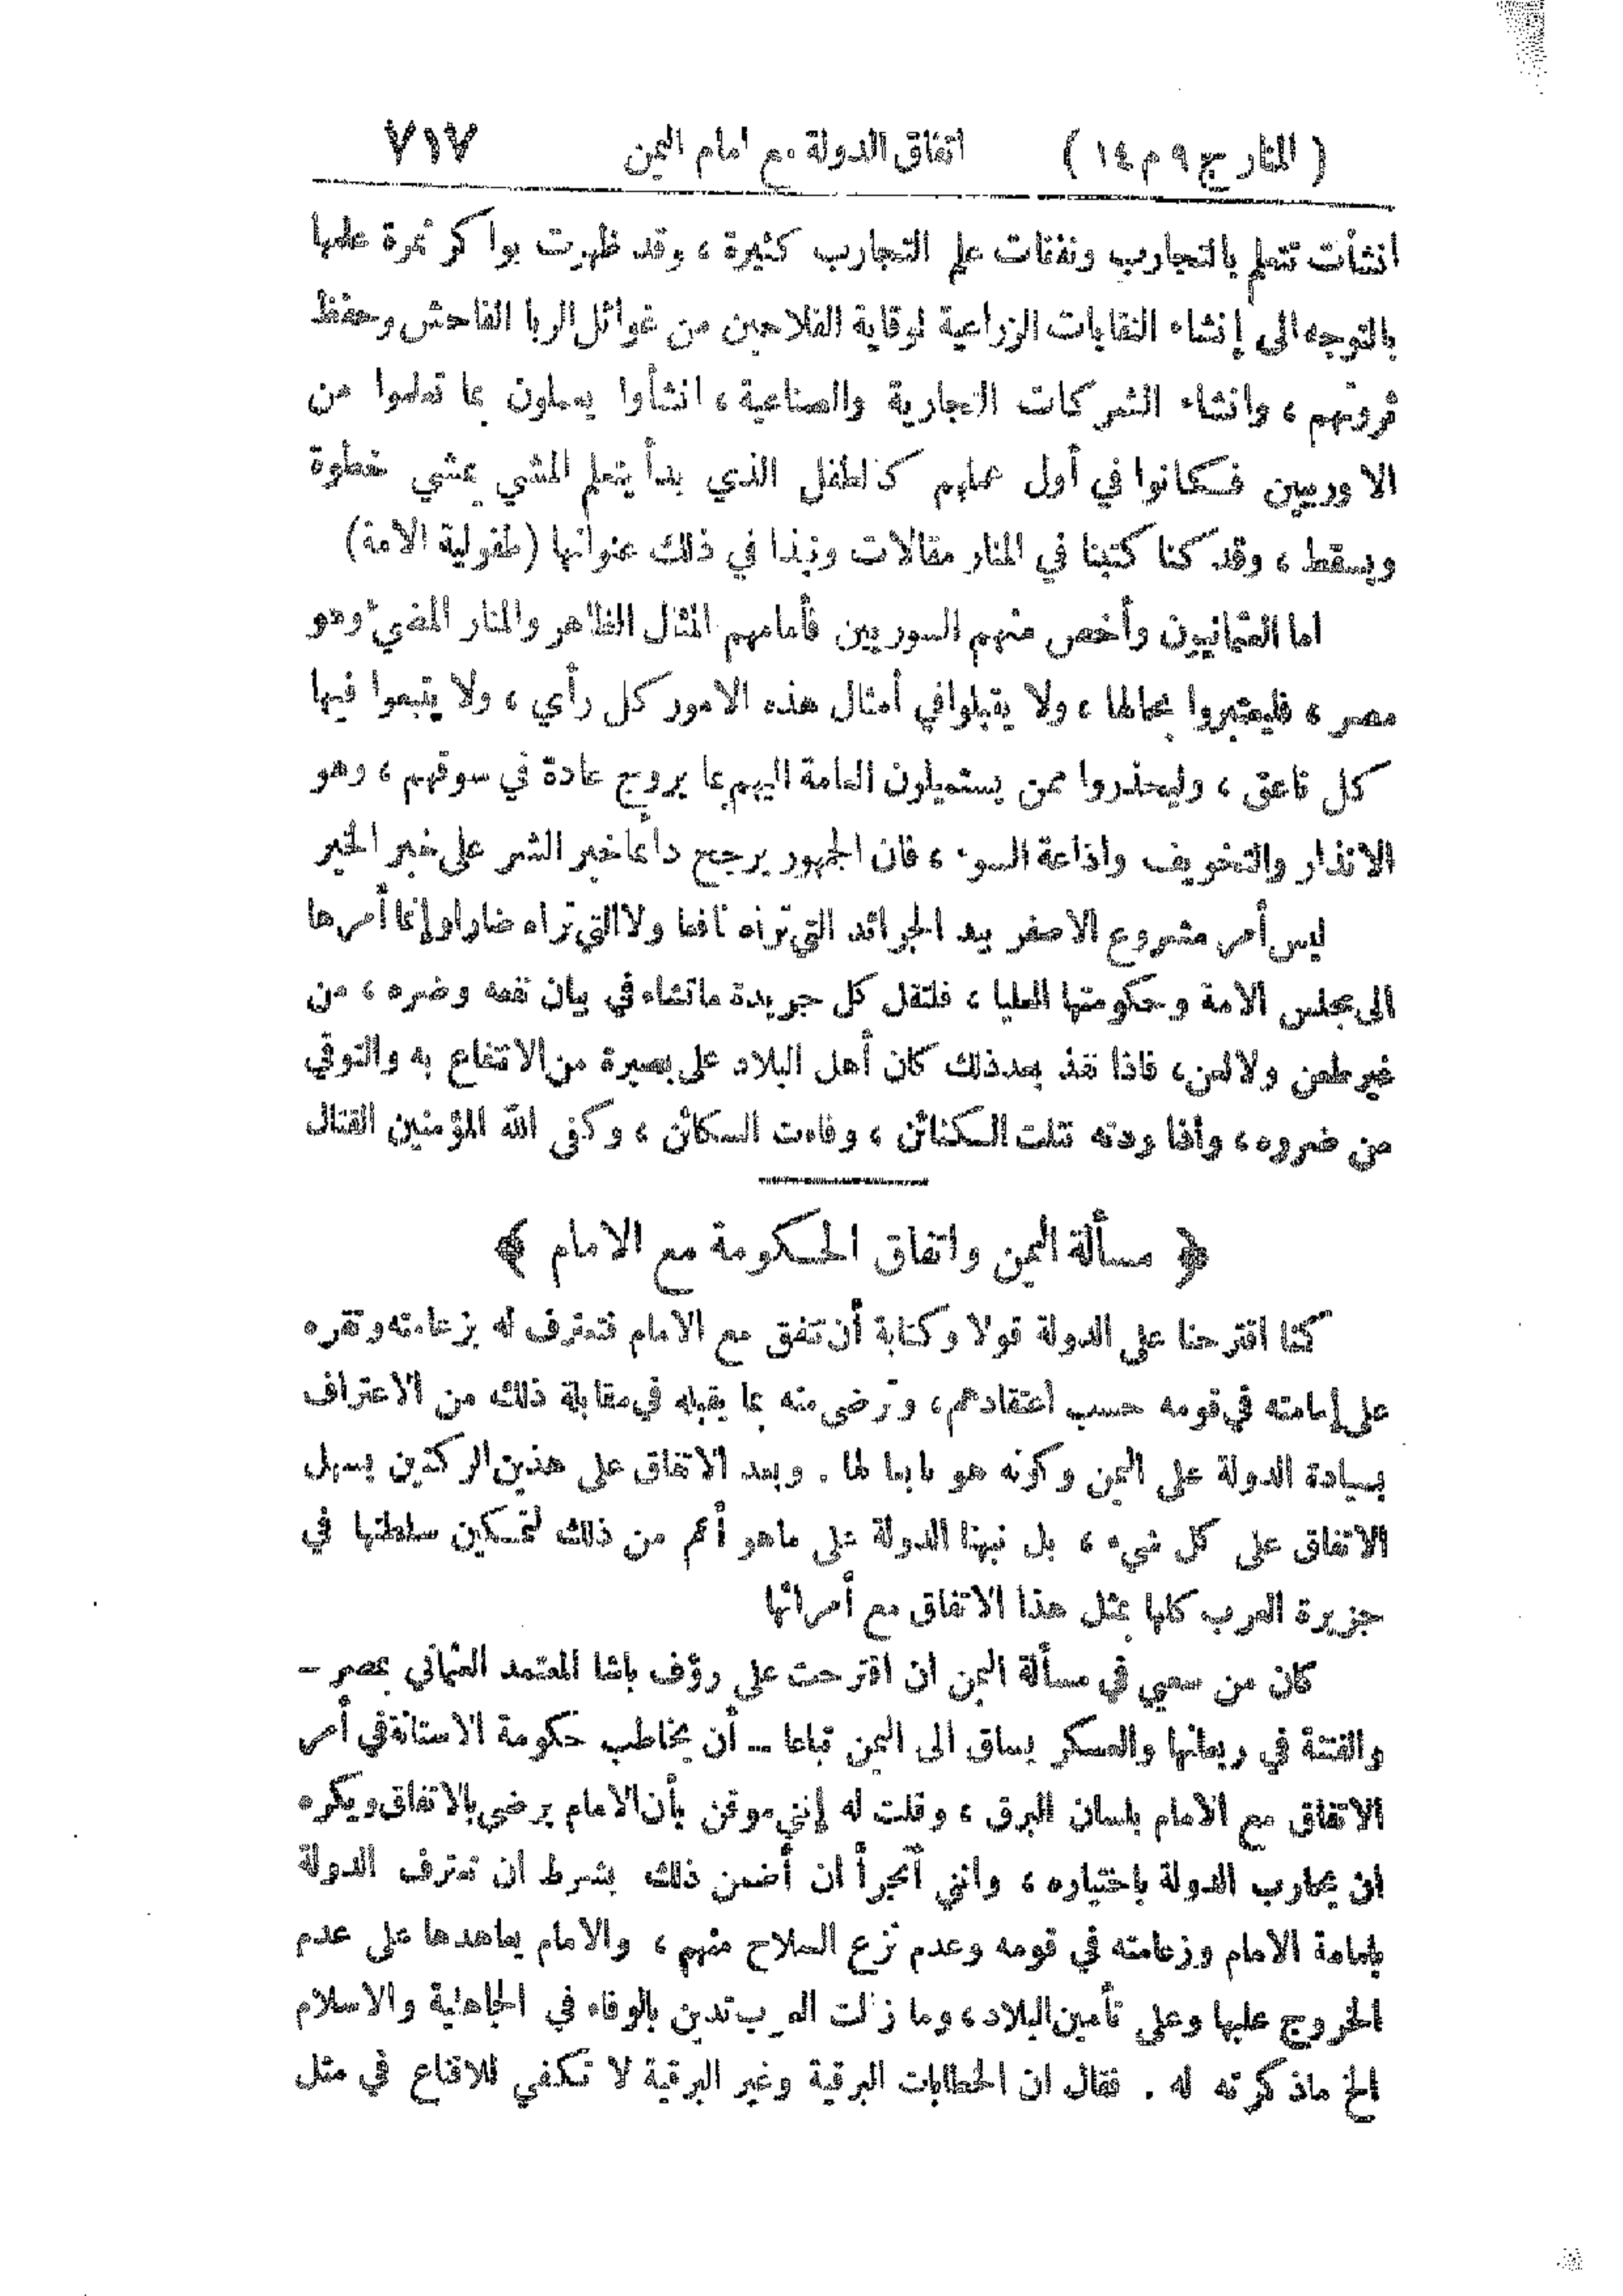 ( المنار ج ٩ م ١٤ ) اتفاق الدولة مع امام اليمن ٧١٧
انشأت تتعلم بالتجارب ونفقات علم التجارب كثيرة ، وقد ظهرت بواكر ثمرة علمها
بالتوجه الى إنشاء النقابات الزراعية لوقاية الفلاحين من غوائل الربا الفاحش وحفظ
ثروتهم ، وانشاء الشركات التجارية والصناعية ، انشأوا يعملون بما تعلموا من
الاوربيين فكانوا في أول عملهم كالطفل الذي بدأ يتعلم المشي يمشي خطوة
ويسقط ، وقد كنا كتبنا في المنار مقالات ونبذا في ذلك عنوانها (طفولية الامة)
اما العثمانيون وأخص منهم السوريين فأمامهم المثال الظاهر والمنار المضيء وهو
مصر ، فليعتبروا بحالها ، ولا يقبلوا في أمثال هذه الامور كل رأي ، ولا يتبعوا فيها
كل ناعق ، وليحذروا ممن يستميلون العامة اليهم بما يروج عادة في سوقهم ، وهو
الانذار والتخويف واذاعة السوء ، فان الجمهور يرجح دائما خبر الشر على خبر الخير
ليس أمر مشروع الاصفر بيد الجرائد التي تراه نافعا ولا التي تراه ضارا وإنما أمرها
الى مجلس الامة وحكومتها العليا ، فلتقل كل جريدة ماتشاء في بيان نفعه وضره ، من
غير طعن ولا لعن، فاذا نفذ بعد ذلك كان أهل البلاد على بصيرة من الانتفاع به والتوقي
من ضرره ، واذا ردته نثلت الكنائن ، وفاءت السكائن ، وكفى الله المؤمنين القتال
﴿ مسألة اليمن واتفاق الحكومة مع الامام ﴾
كنا اقترحنا على الدولة قولا وكتابة أن تتفق مع الامام فتعترف له بزعامته وتقره
على إمامته في قومه حسب اعتقادهم، وترضى منه بما يقبله في مقابلة ذلك من الاعتراف
بسيادة الدولة على اليمن وكونه هو تابعا لها . وبعد الاتفاق على هذين الركنين يسهل
الاتفاق على كل شيء ، بل نبهنا الدولة على ماهو أعم من ذلك لتمكين سلطتها في
جزيرة العرب كلها بمثل هذا الاتفاق مع أمرائها
كان من سعيي في مسألة اليمن ان اقترحت على رؤف باشا المعتمد العثماني بمصر –
والفتنة في ريعانها والعسكر يساق الى اليمن تباعا – أن يخاطب حكومة الاستانة في أمر
الاتفاق مع الامام بلسان البرق ، وقلت له إنني موقن بأن الامام يرضى بالاتفاق ويكره
ان يحارب الدولة باختياره ، وانني أتجرأ ان أضمن ذلك بشرط ان تعترف الدولة
بامامة الامام وزعامته في قومه وعدم نزع السلاح منهم ، والامام يعاهدها على عدم
الخروج عليها وعلى تأمين البلاد ، وما زالت العرب تدين بالوفاء في الجاهلية والاسلام
الخ ماذكرته له . فقال ان الخطابات البرقية وغير البرقية لا تكفي للاقناع في مثل